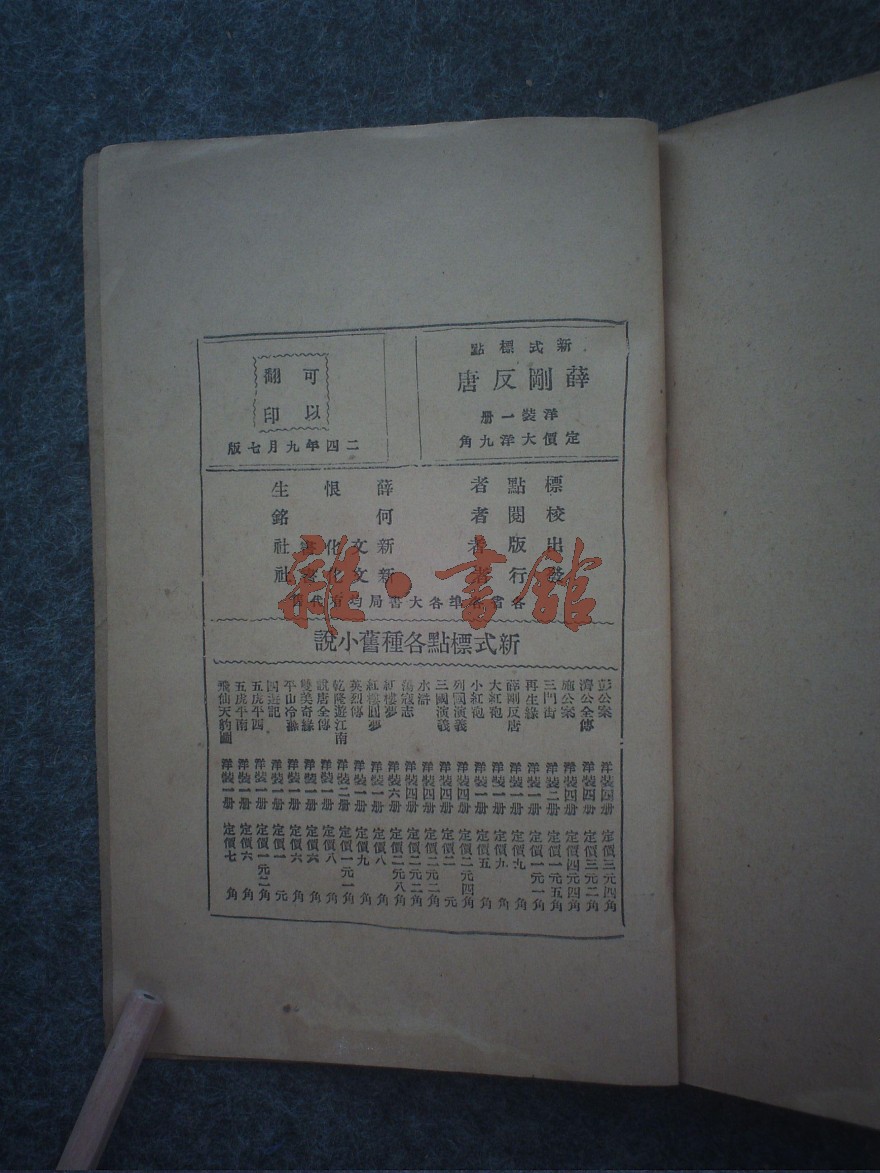 新式標點
薛剛反唐
洋裝一册
定價大洋九角
可以
翻印
二四年九月七版
標點者 薛恨生
校閱者 何銘
出版者 新文化書社
發行者 新文化書社
各省各埠各大書局均有代售
雜·書館
新式標點各種舊小說
彭公案 洋裝四册 定價三元四角
濟公全傳 洋裝四册 定價三元二角
施公案 洋裝四册 定價四元四角
三門街 洋裝二册 定價一元五角
再生緣 洋裝一册 定價一元一角
薛剛反唐 洋裝一册 定價九角
大紅袍 洋裝一册 定價九角
小紅袍 洋裝一册 定價五角
列國演義 洋裝四册 定價二元四角
三國演義 洋裝四册 定價二元
水滸 洋裝四册 定價二元二角
蕩寇志 洋裝四册 定價二元二角
紅樓夢 洋裝六册 定價二元八角
紅樓圓夢 洋裝一册 定價八角
英烈傳 洋裝一册 定價九角
乾隆遊江南 洋裝二册 定價一元一角
說唐全傳 洋裝一册 定價八角
雙美奇緣 洋裝一册 定價六角
平山冷燕 洋裝一册 定價六角
四遊記 洋裝一册 定價一元
五虎平西 洋裝一册 定價一元二角
五虎平南 洋裝一册 定價六角
飛仙天豹圖 洋裝一册 定價七角